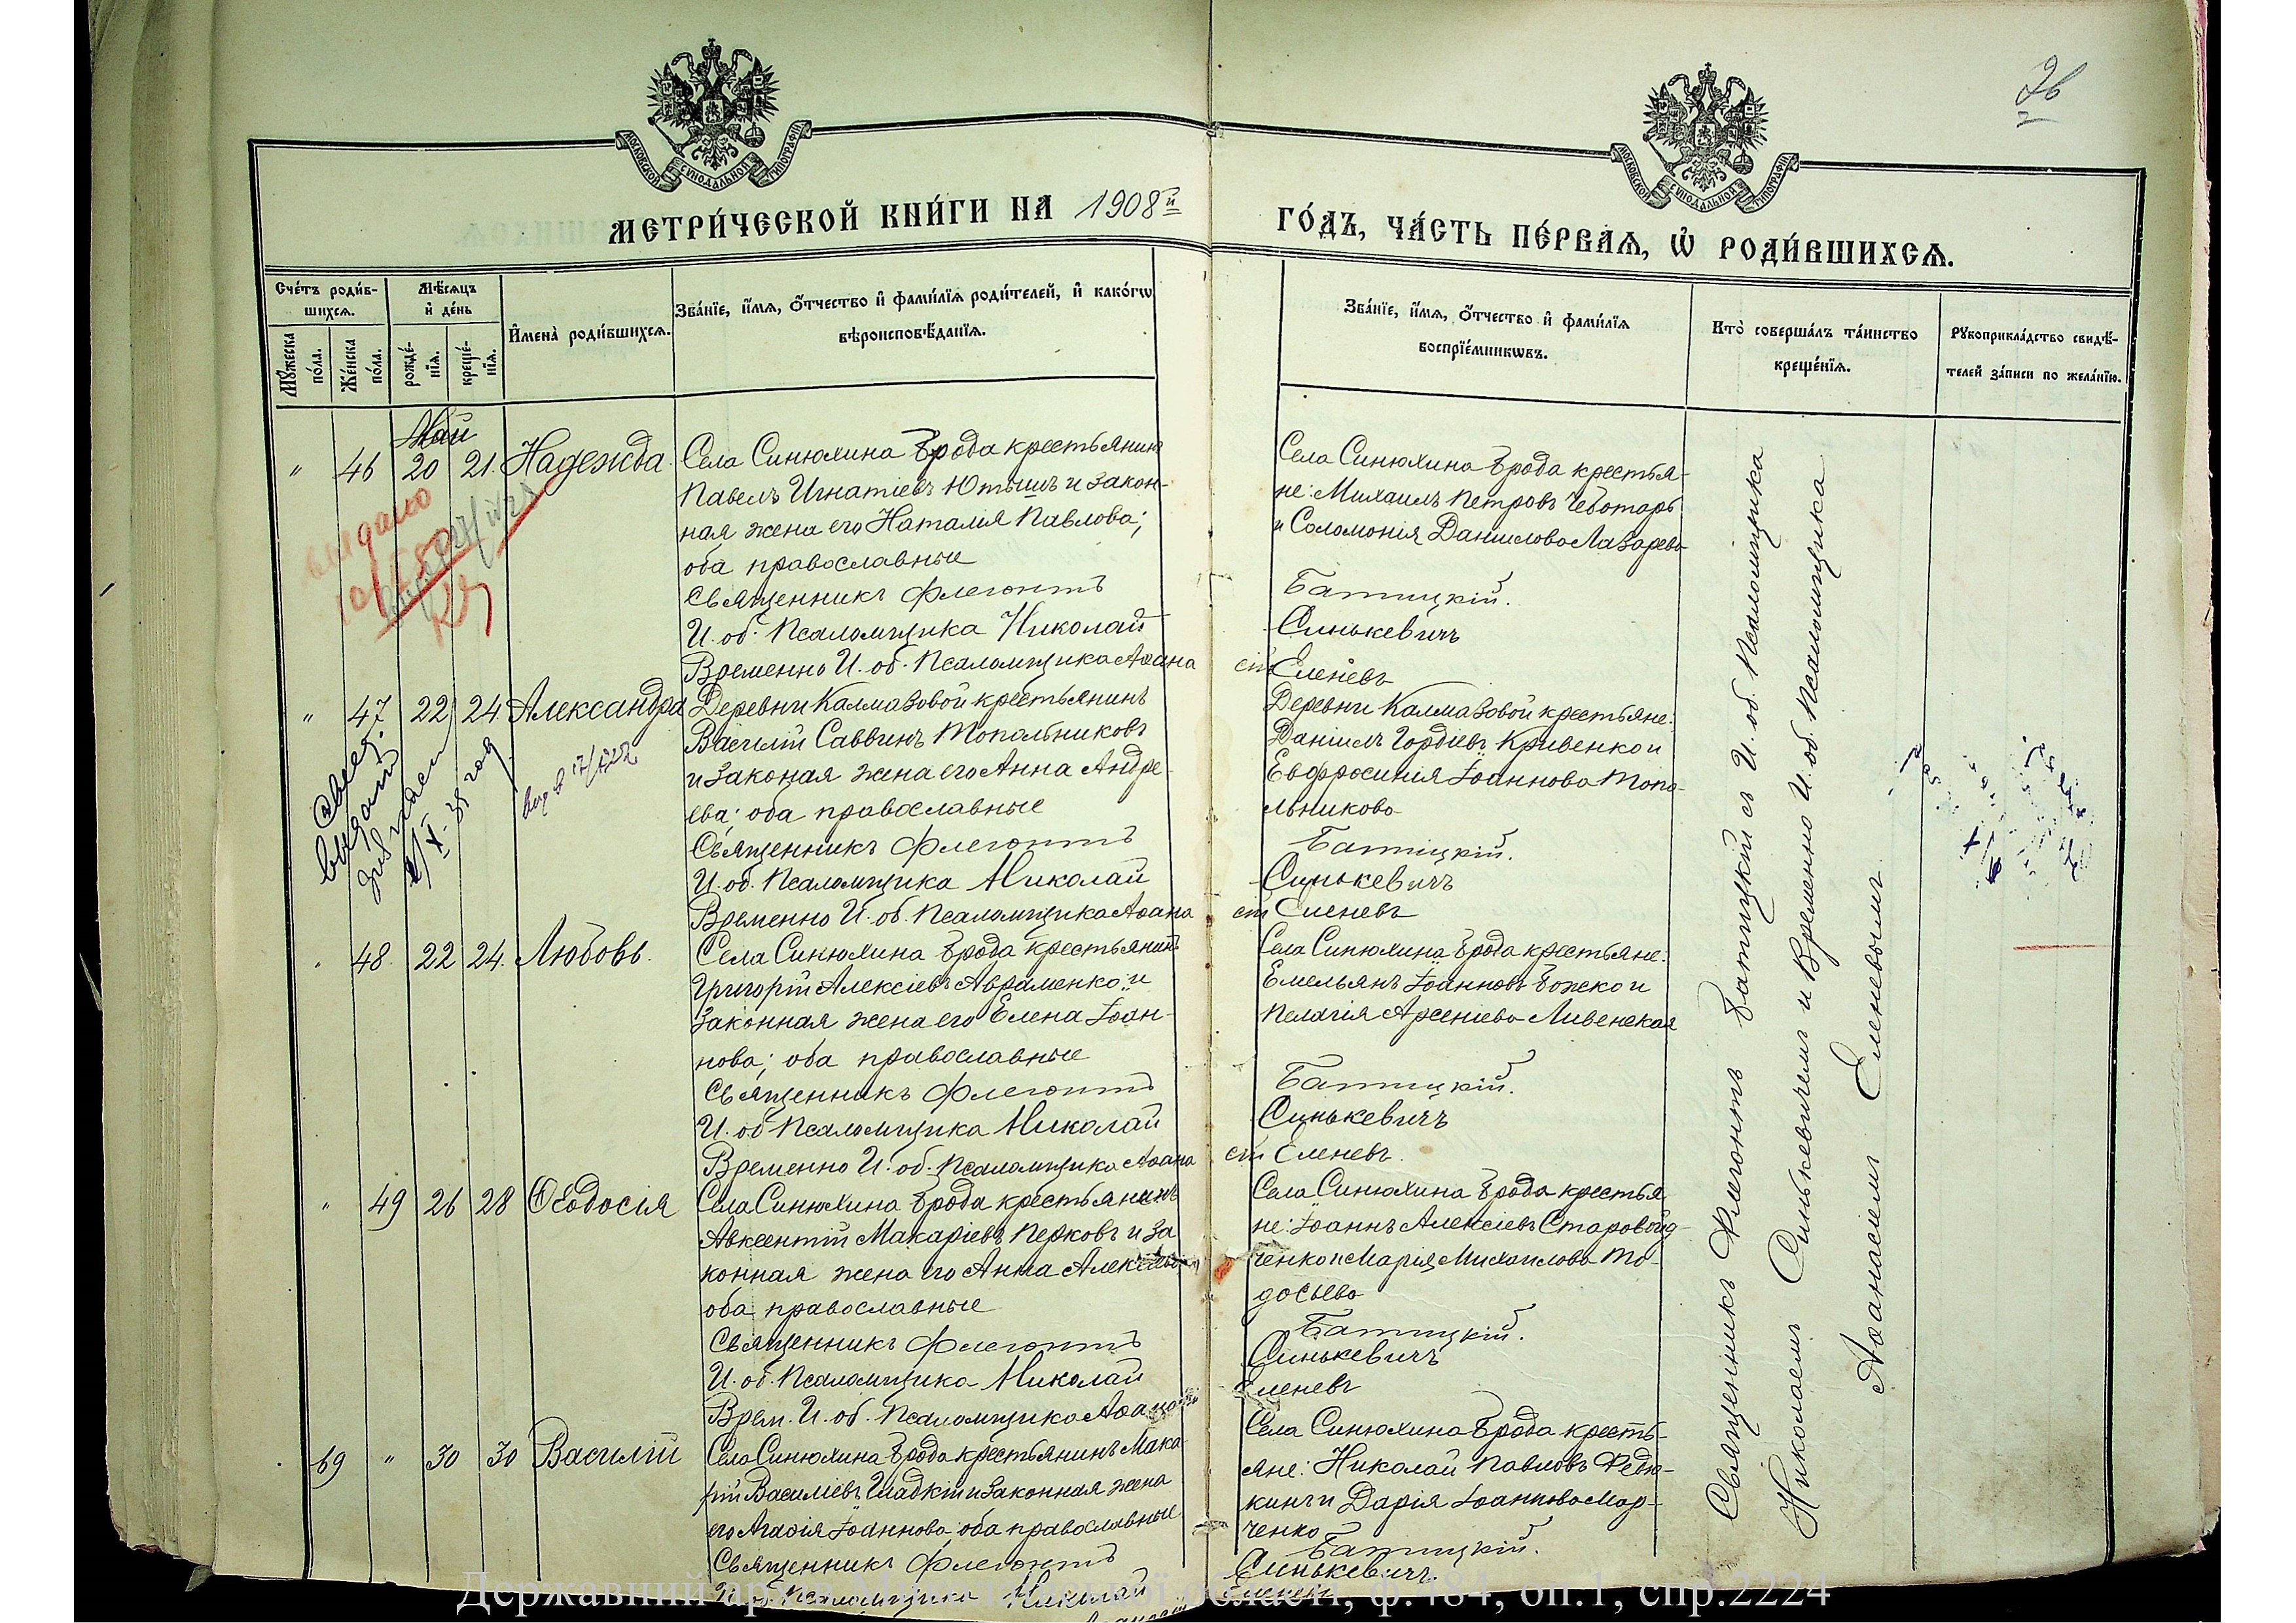 26
МОСКОВСКОЙ СѴНОДАЛЬНОЙ ТИПОГРАФІИ
МОСКОВСКОЙ СѴНОДАЛЬНОЙ ТИПОГРАФІИ
МЕТРИ́ЧЕСКОЙ КНИ́ГИ НА 1908й
ГО́ДЪ, ЧА́СТЬ ПЕ́РВАѦ, Ѡ҆ РОДИ́ВШИХСѦ.
Сче́тъ роди́в-
шихсѧ.
Мꙋжеска по́ла.
Же́нска по́ла.
Мѣ́сѧцъ
и҆ де́нь
рожде́-
нїѧ.
креще́-
нїѧ.
И҆мена̀ роди́вшихсѧ.
Зва́нїе, и҆́мѧ, ѻ҆́тчество и҆ фами́лїѧ роди́телей, и҆ како́гѡ
вѣроисповѣ́данїѧ.
Зва́нїе, и҆́мѧ, ѻ҆́тчество и҆ фами́лїѧ
воспрїе́мникѡвъ.
Кто̀ соверша́лъ та́инство
креще́нїѧ.
Рꙋкоприкла́дство свидѣ́-
телей за́писи по жела́нїю.
Май
" 46 20 21. Надежда.
Села Синюхина Брода крестьянинъ
Павелъ Игнатіевъ Ютышъ и закон-
ная жена его Наталія Павлова;
оба православные
Священникъ Флегонтъ
И. об. Псаломщика Николай
Временно И. об. Псаломщика Аѳана
Села Синюхина Брода крестья-
не: Михаилъ Петровъ Чеботарь
и Соломонія Даниилова Лазарева
Батицкій.
Синькевичъ
сій Еленевъ
выдано
" 47 22 24 Александра
Деревни Калмазовой крестьянинъ
Василій Саввинъ Топольниковъ
и законая жена его Анна Андре-
ева; оба православные
Священникъ Флегонтъ
И. об. Псаломщика Николай
Временно И. об. Псаломщика Аѳана
Деревни Калмазовой крестьяне:
Даніилъ Гордіевъ Кривенко и
Евфросинія Іоаннова Топо-
льникова
Батицкій.
Синькевичъ
сій Еленевъ
" 48. 22 24. Любовь.
Села Синюхина Брода крестьянинъ
Григорій Алексіевъ Авраменко и
законная жена его Елена Іоан-
нова; оба православные
Священникъ Флегонтъ
И. об Псаломщика Николай
Временно И. об. Псаломщика Аѳана
Села Синюхина Брода крестьяне:
Емельянъ Іоанновъ Божко и
Пелагія Арсеніева Ливенская
Батицкій.
Синькевичъ
сій Еленевъ.
" 49 26 28 Ѳеодосія
Села Синюхина Брода крестьянинъ
Авксентій Макаріевъ Перковъ и за
конная жена его Анна
оба православные
Священникъ Флегонтъ
И. об. Псаломщика Николай
Врем. И. об. Псаломщика
Села Синюхина Брода крестья
не: Іоаннъ Алексіевъ Старовойд-
ченко и Марія Михаилова То-
досьева
Батицкій.
Синькевичъ
Еленевъ
69 " 30 30 Василій
Села Синюхина Брода крестьянинъ Мака
рій Василіевъ Гладкій и законная жена
его Агаѳія Іоаннова, оба православные
Священникъ Флегонтъ
И. об. Псаломщика Николай
Села Синюхина Брода кресть-
яне: Николай Павловъ Федю-
кинъ и Дарія Іоаннова Мар-
ченко
Батицкій.
Синькевичъ.
Еленевъ
Священникъ Флегонтъ Батицкій съ И. об. Псаломщика
Николаемъ Синькевичемъ и Временно И. об. Псаломщика
Аѳанасіемъ Еленевымъ
ф. 484, оп.1, спр.2224